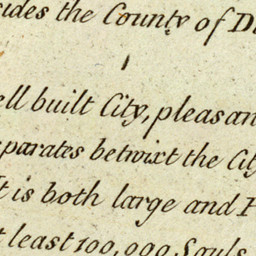 sides the County of D
ell built City, pleasan
parates betwixt the City
It is both large and P
t least 100,000 Souls